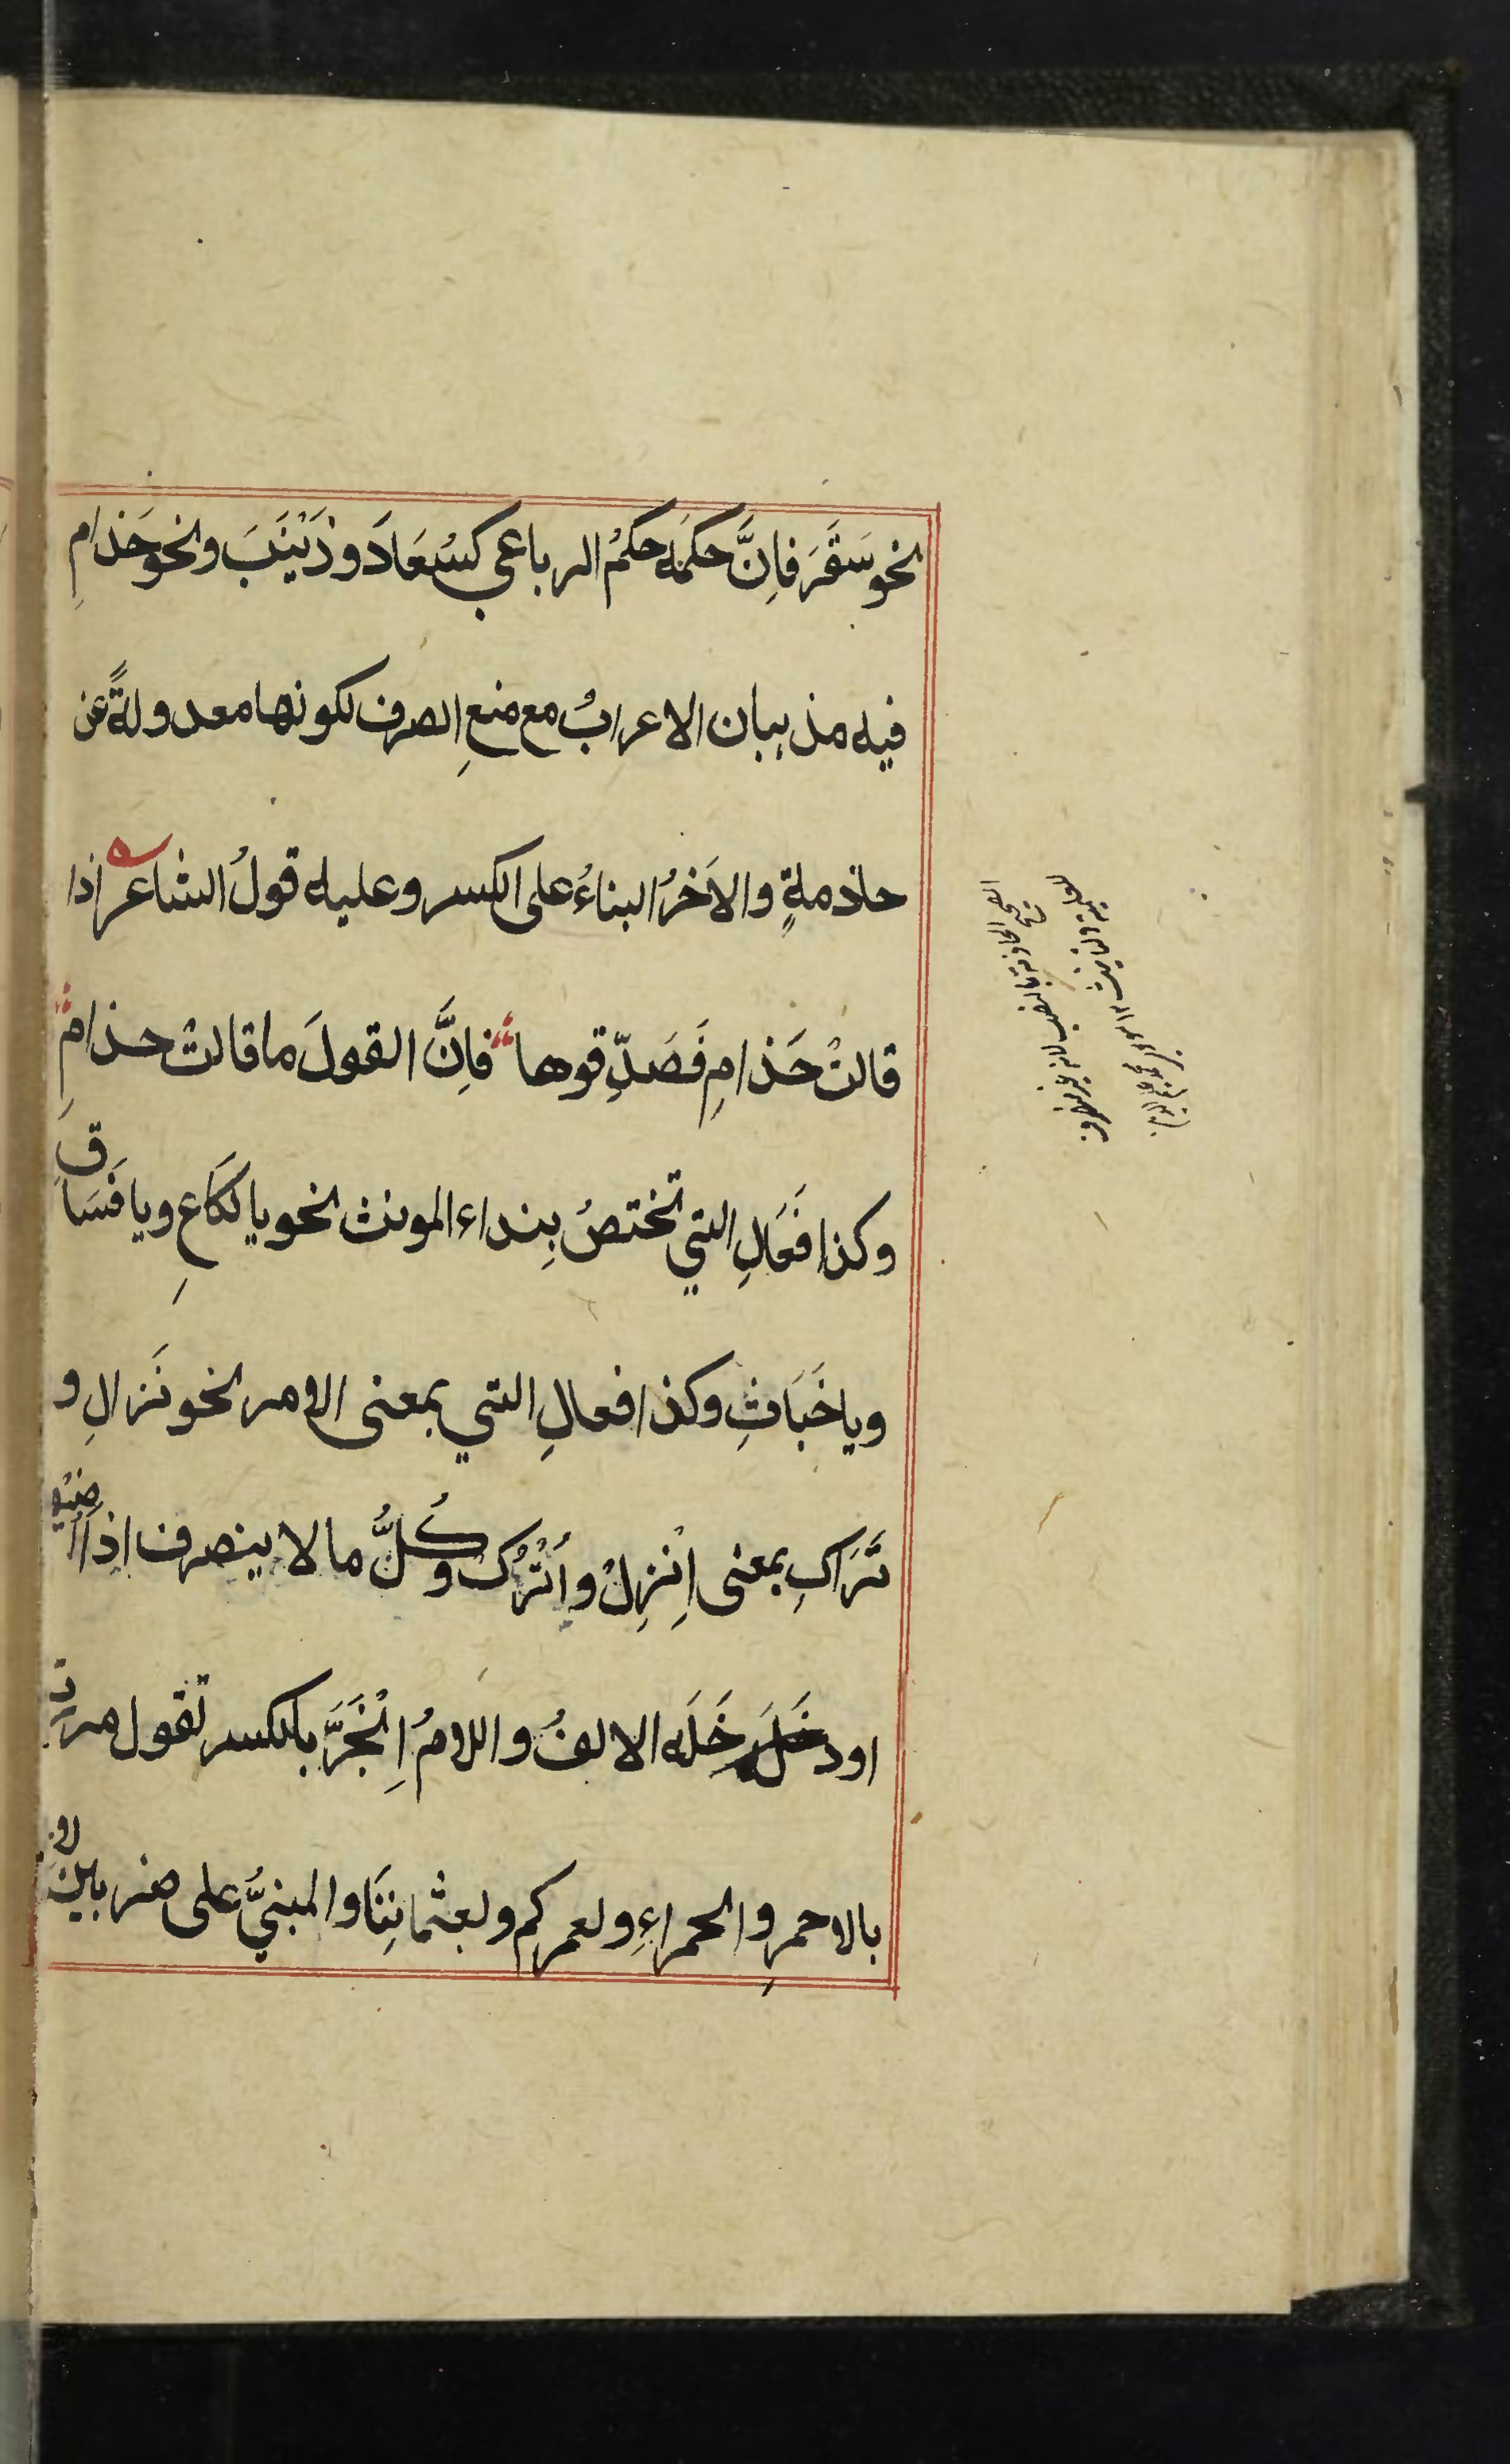 نحو سَقَرَ فاِنَّ حكمَه حكمُ الرباعي كسُعَادَ وزَيْنَبَ ونحو حَذامِ
فيه مذهبان الاعرابُ مع منعِ الصرف لكونها معدولةً عن
حاذمةٍ والاَخرُ البناءُ على الكسر وعليه قولُ الشاعر اذا
قالتْ حَذامِ فَصَدِّقوها فاِنَّ القولَ ما قالتْ حذامِ
وكذا فَعَالِ التي تختصُ بِنداء المونث نحو يا لَكَاعِ ويا فَسَاقِ
ويا خَبَاثِ وكذا فعالِ التي بمعنى الامر نحو نَزالِ و
تَرَاكِ بمعنى اِنْزِلْ واُتْرُكْ وكُلُّ ما لا ينصرف اذا اُضيف
او دخَلَه الالفُ واللامُ اِنْجَرَّ بالكسر تقول مررت
بالاحمرِ والحمراءِ ولعمركم وبعثماننَا والمبنيُّ على ضربين لاز